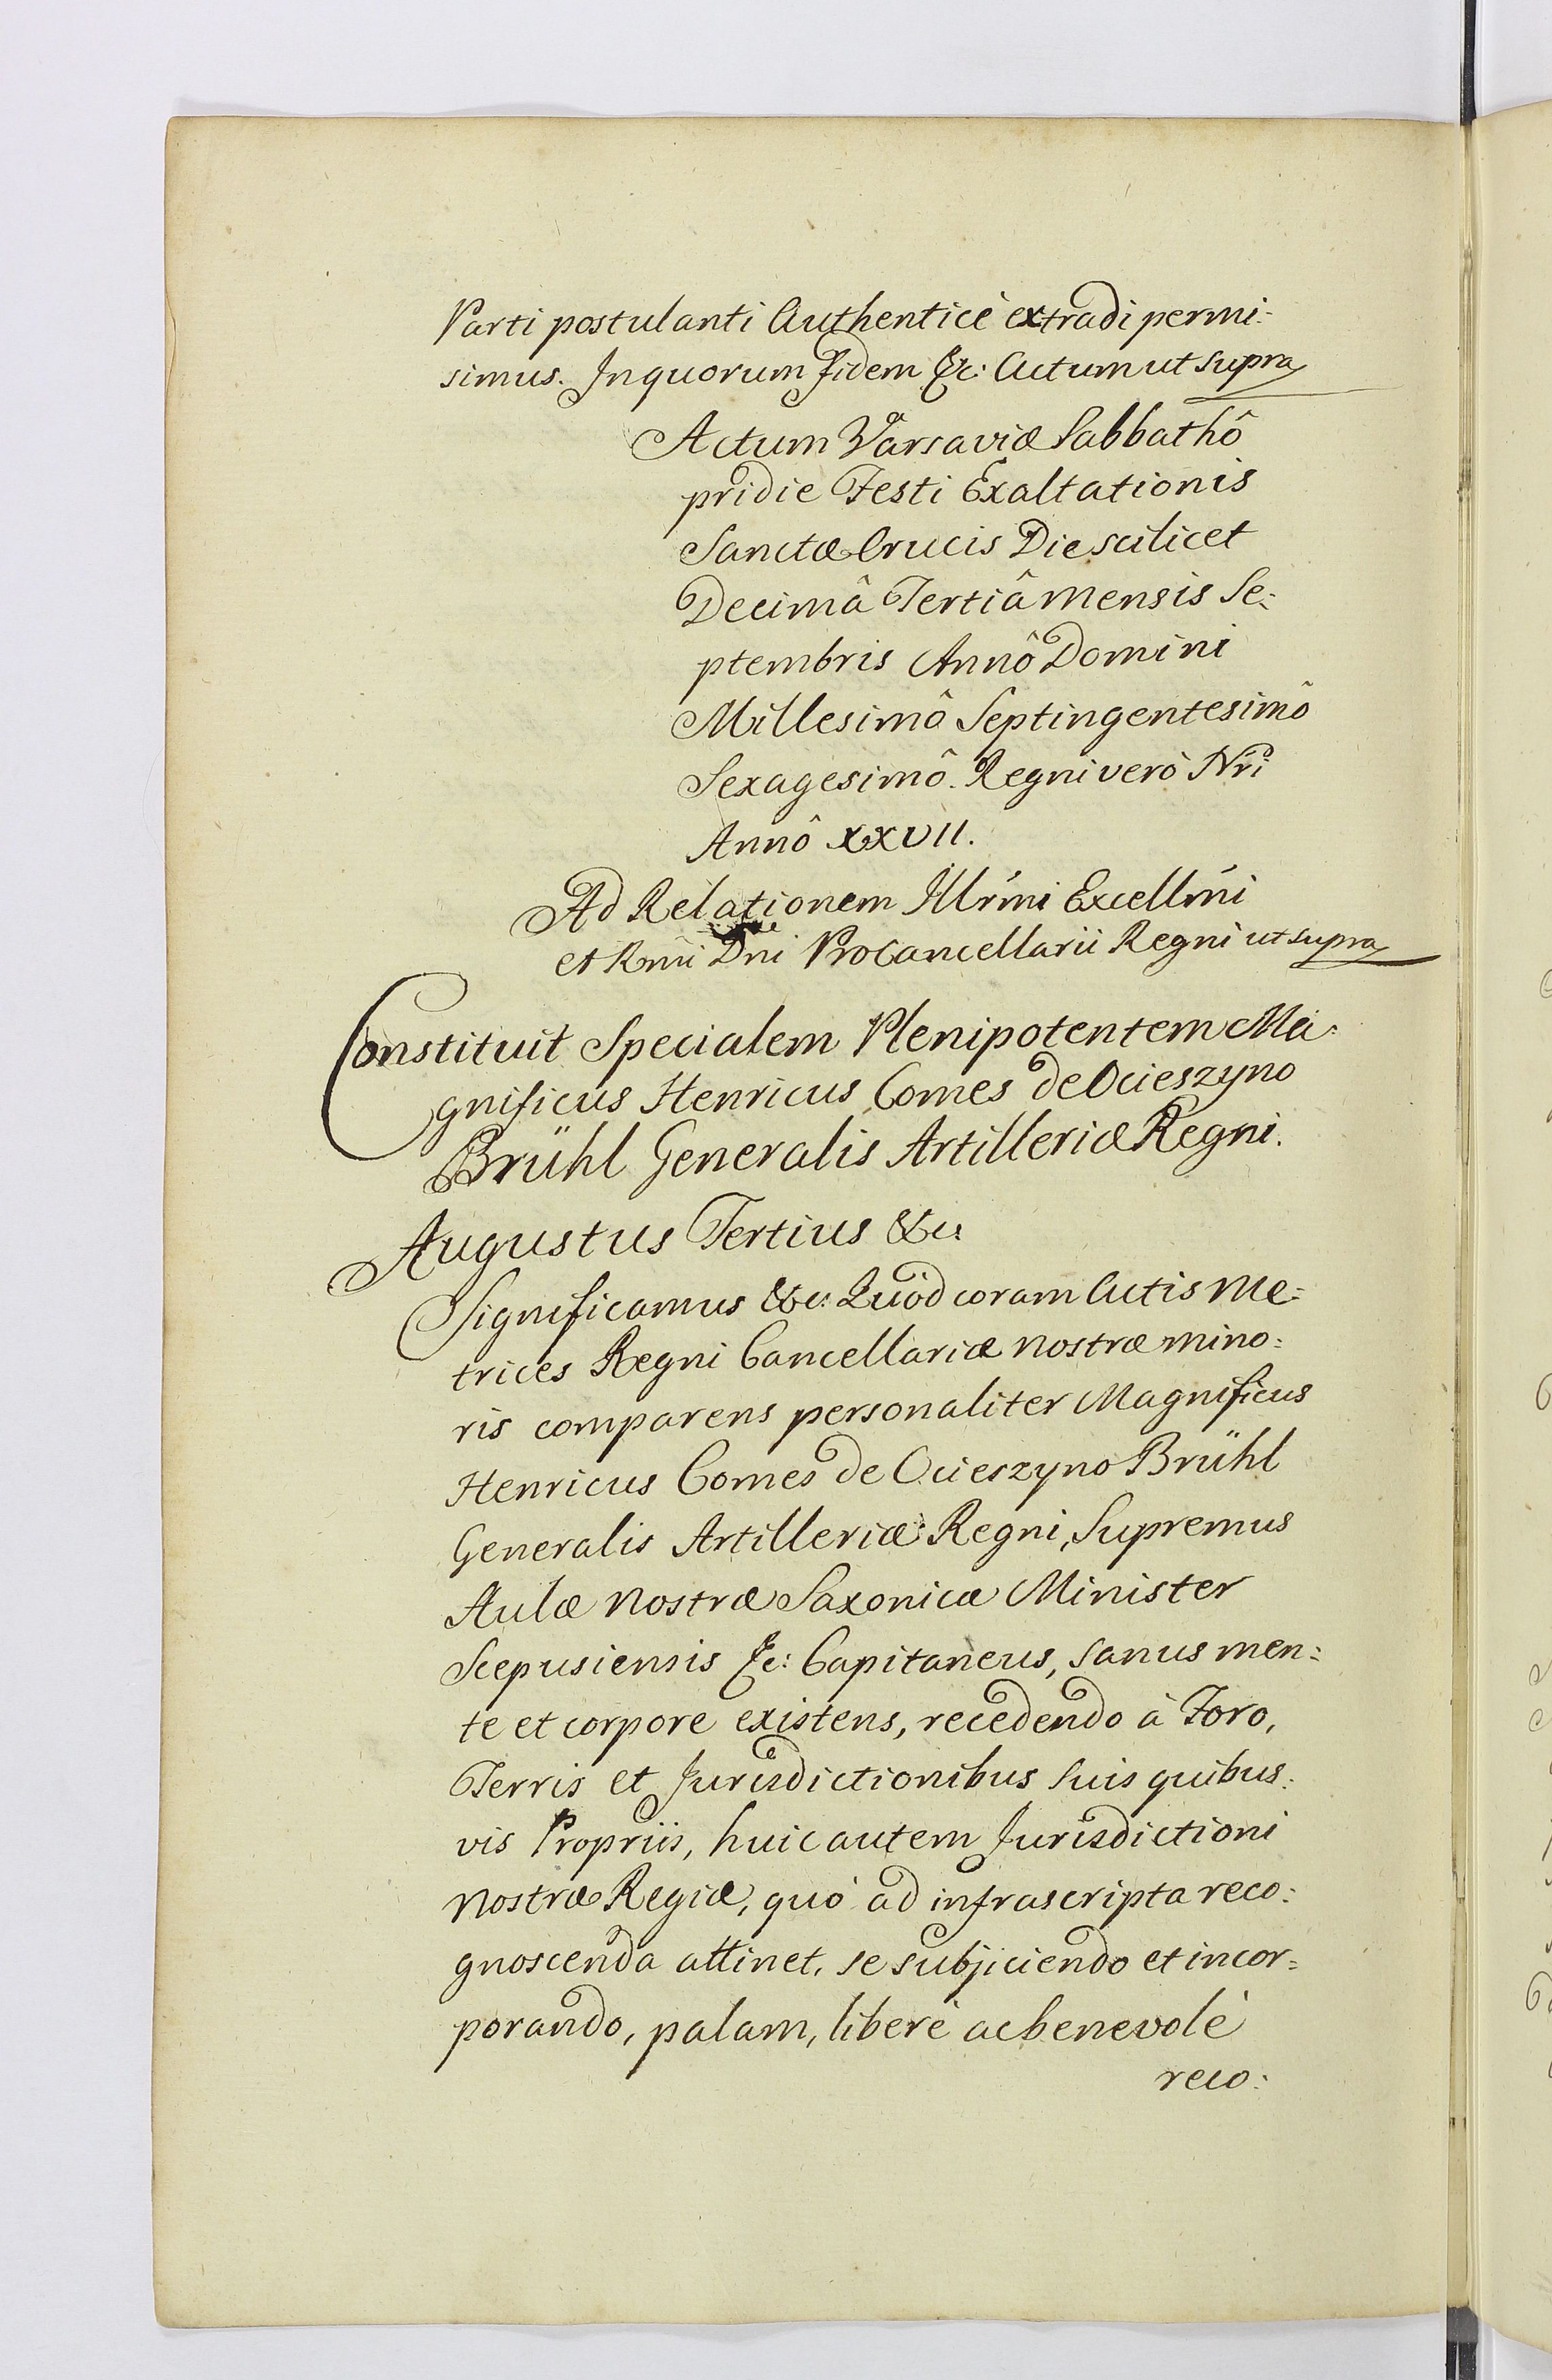 Parti postulanti Authenticè extradi permi:
simus. In quorum fidem &c: Actum ut supra
Actum Varsaviæ Sabbathô
pridie Festi Exaltationis
Sanctæ Crucis Die scilicet
Decimâ Tertiâ mensis Se:
ptembris Annô Domini
Millesimô Septingentesimô
Sexagesimô. Regni verò Nri
Annô XXVII.
Ad Relationem Illrmi Excellmi
et Rmi Dni ProCancellarii Regni ut supra
Constituit Specialem Plenipotentem Ma:
gnificus Henricus Comes de Ocieszyno
Brühl Generalis Artilleriæ Regni.
Augustus Tertius &c:
Significamus &c: Quòd coram Actis Me:
trices Regni Cancellariæ nostræ mino:
ris comparens personaliter Magnificus
Henricus Comes de Ocieszyno Brühl
Generalis Artilleriæ Regni, Supremus
Aulæ nostræ Saxonicæ Minister
Scepusiensis &c: Capitaneus, sanus men:
te et corpore existens, recedendo à Foro,
Terris et Jurisdictionibus suis quibus:
vis Propriis, huic autem Jurisdictioni
nostræ Regiæ, quò ad infrascripta reco:
gnoscenda attinet, se subjiciendo et incor:
porando, palam, liberè ac benevolè
reco: